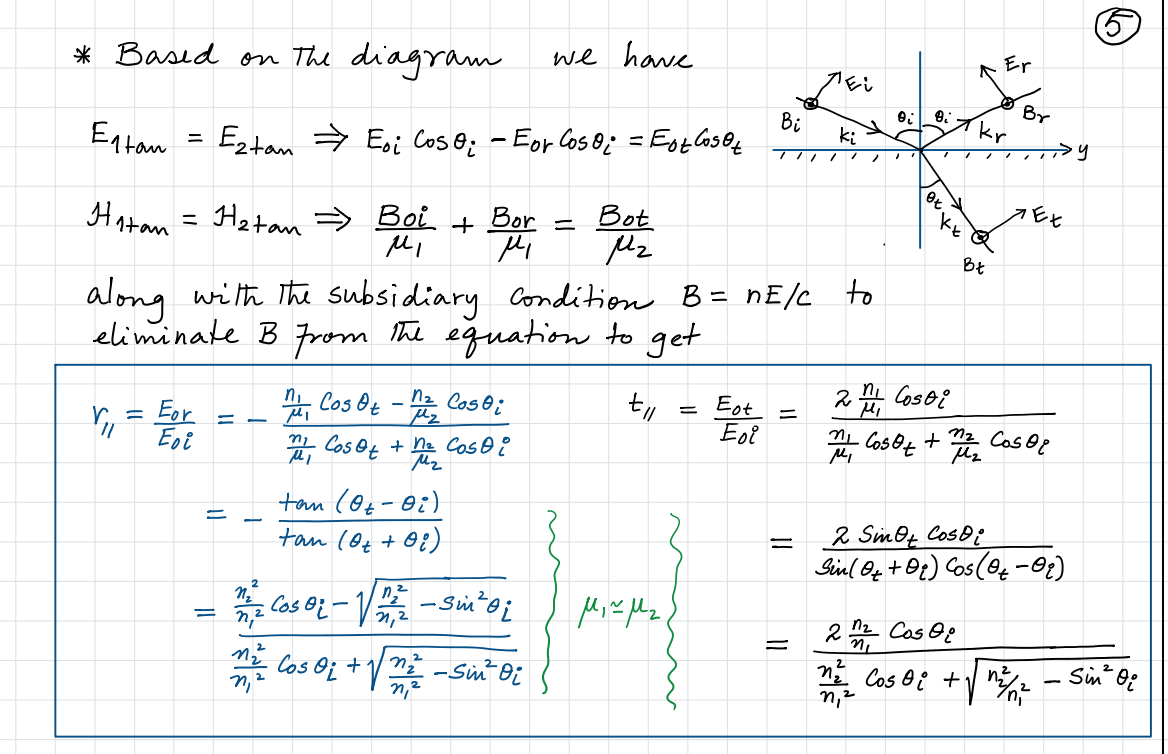 5
* Based on the diagram we have
E₁tan = E₂tan ⇒ E₀i Cosθi − E₀r Cosθi = E₀t Cosθt
H₁tan = H₂tan ⇒ B₀i/μ₁ + B₀r/μ₁ = B₀t/μ₂
Ei Er
Bi θi θi Br
ki kr
y
θt
kt Et
Bt
along with the subsidiary condition B = nE/c to
eliminate B from the equation to get
r∥ = E₀r/E₀i = − (n₁/μ₁ Cosθt − n₂/μ₂ Cosθi)/(n₁/μ₁ Cosθt + n₂/μ₂ Cosθi)
= − tan(θt − θi)/tan(θt + θi)
= (n₂²/n₁² Cosθi − √(n₂²/n₁² − Sin²θi))/(n₂²/n₁² Cosθi + √(n₂²/n₁² − Sin²θi))
μ₁ ≃ μ₂
t∥ = E₀t/E₀i = (2 n₁/μ₁ Cosθi)/(n₁/μ₁ Cosθt + n₂/μ₂ Cosθi)
= 2 Sinθt Cosθi/(Sin(θt + θi) Cos(θt − θi))
= (2 n₂/n₁ Cosθi)/(n₂²/n₁² Cosθi + √(n₂²/n₁² − Sin²θi))